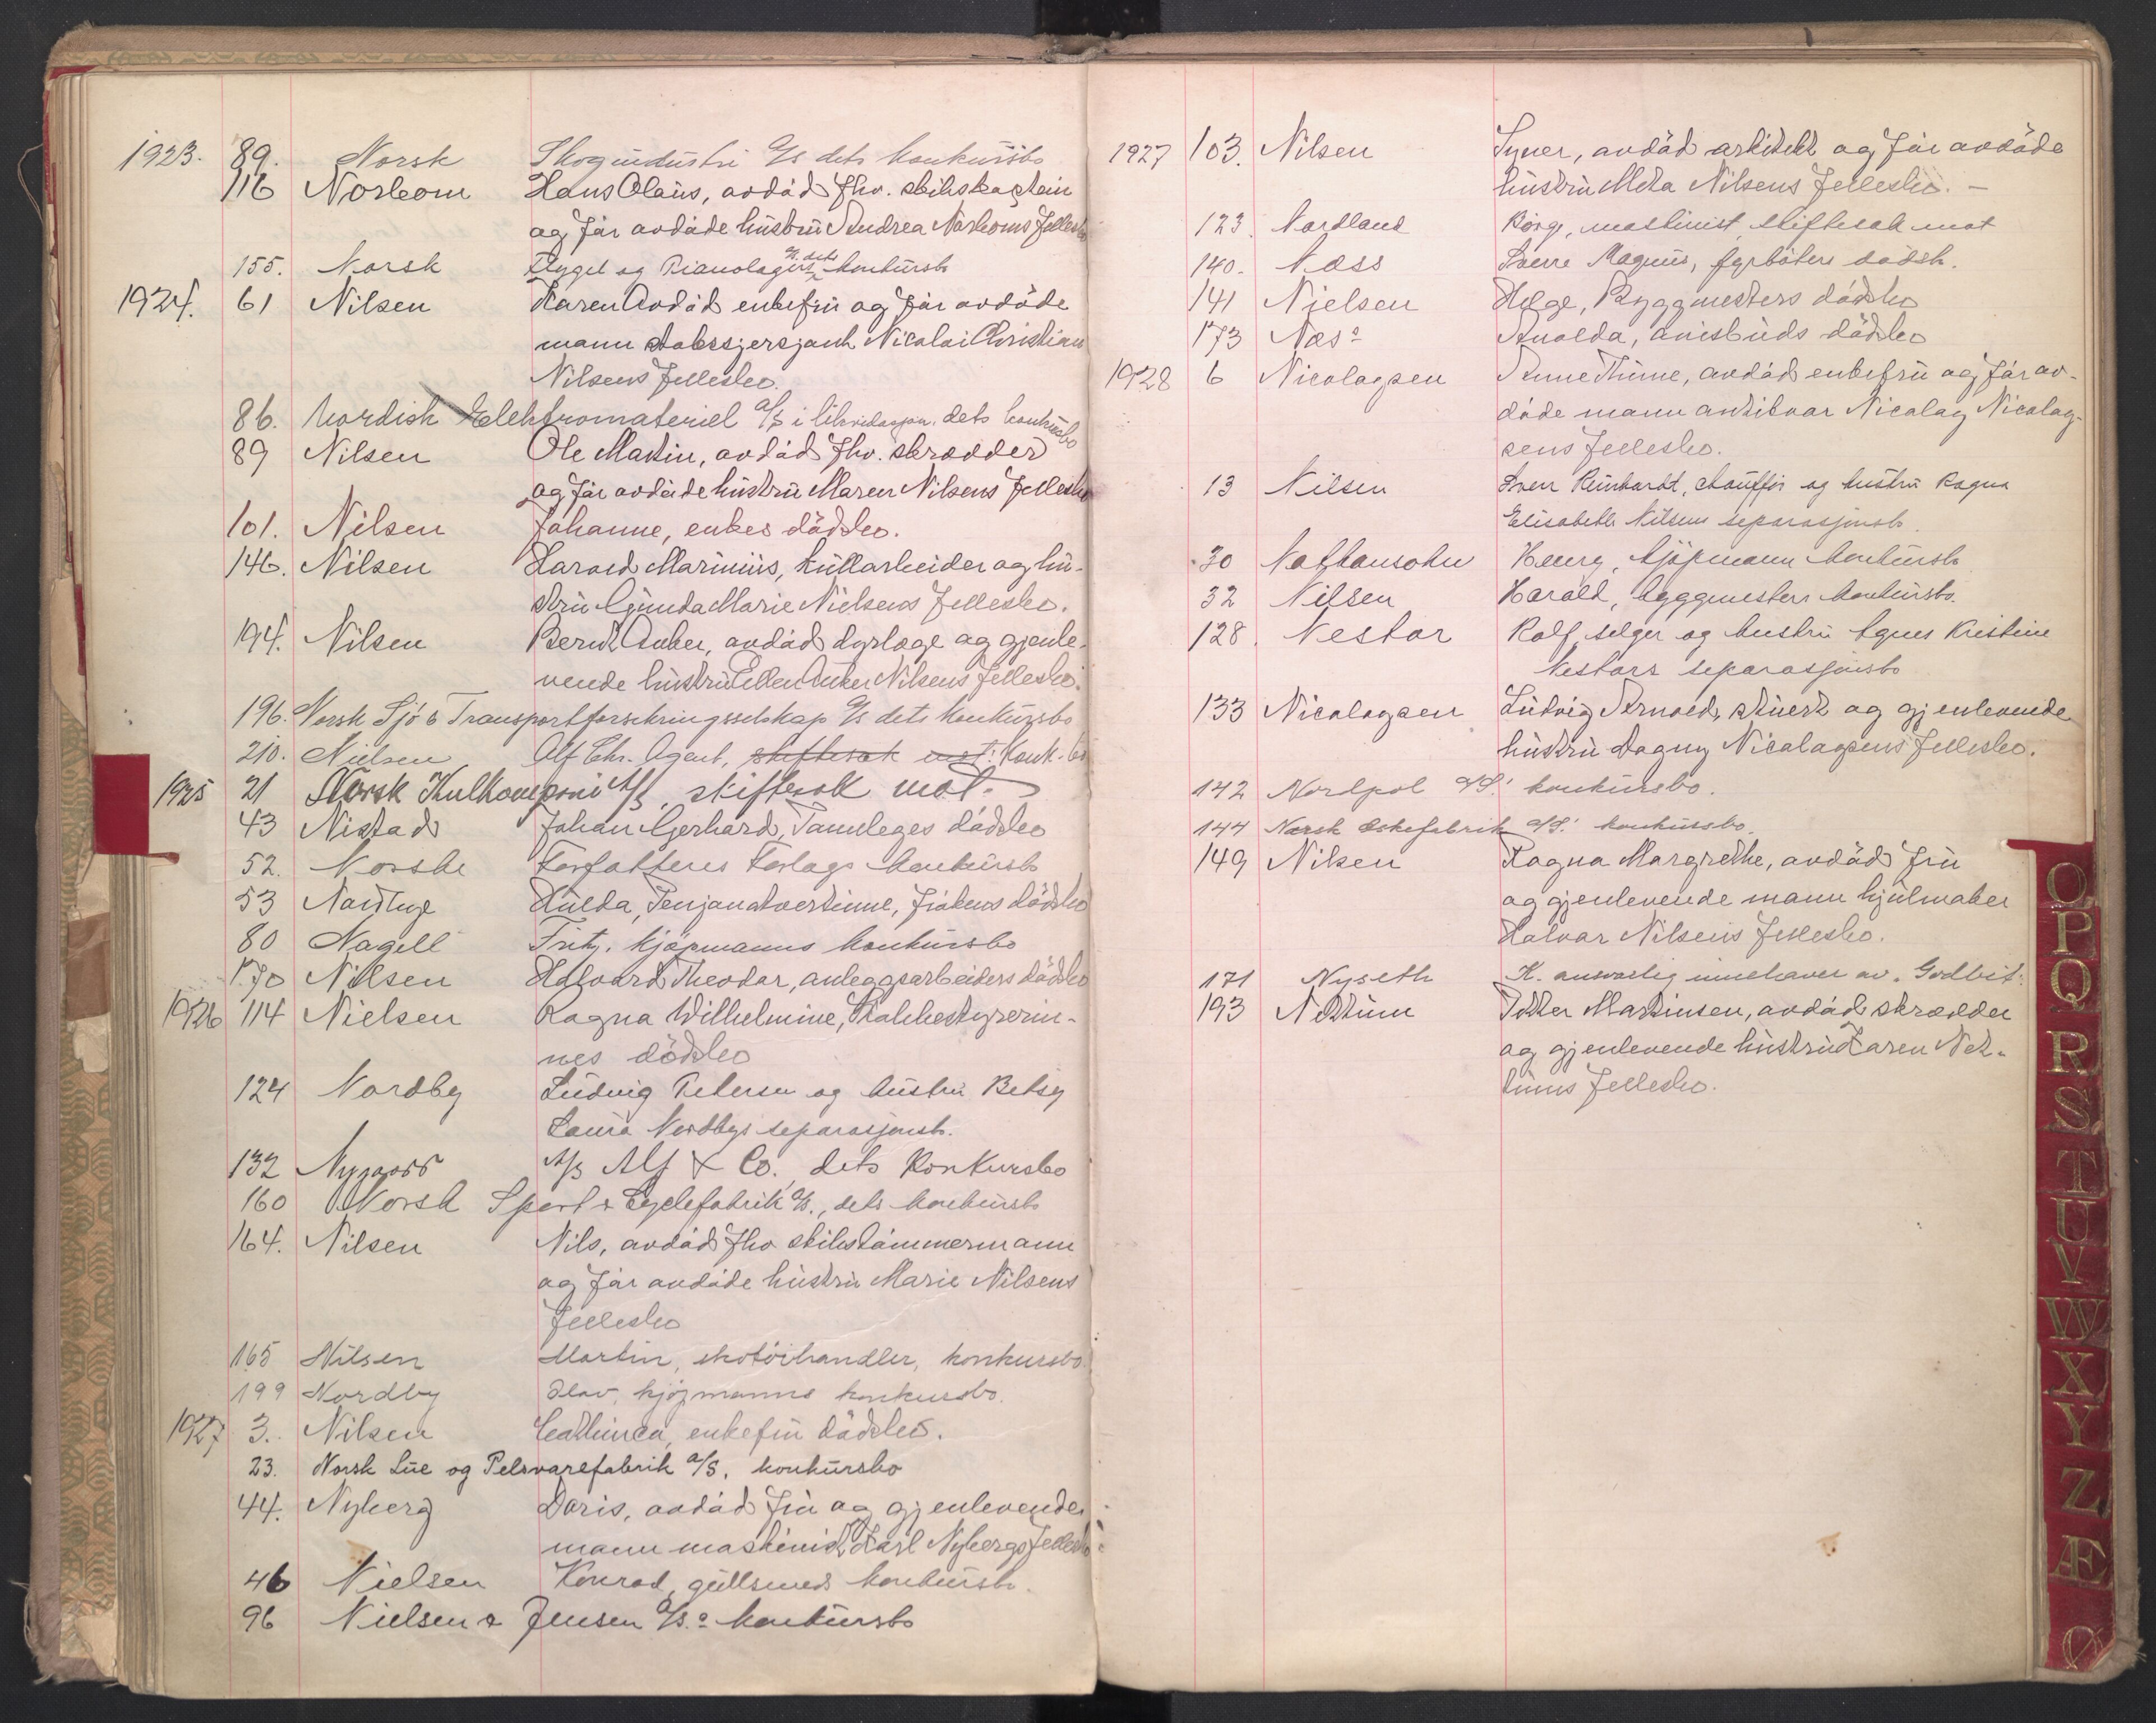 1923. 89. Norsk Skogindustri A/S dets konkursbo
116 Norbom Hans Olaus, avdød fhv. skibskaptein
og før avdøde hustru Andrea Norboms fellesbo
155. Norsk Flygel og Pianolagers A/S dets konkursbo
1924. 61 Nilsen Karen avdød enkefru og før avdøde
mann stabssjersjant Nicolai Christian
Nilsens fellesbo.
86. Nordisk Elektromateriel A/S i likvidasjon. dets konkursbo
89 Nilsen Ole Martin, avdød fhv. skrædder
og før avdøde hustru Maren Nilsens fellesbo
101. Nilsen Johanne, enkes dødsbo.
146. Nilsen Harald Marinius, kullarbeider og hu-
stru Gunda Marie Nielsens fellesbo.
194. Nilsen Bernt Anker, avdød dyrlæge og gjenle-
vende hustru Ellen Anker Nilsens fellesbo.
196. Norsk Sjö & Transportforsikringsselskap A/S dets konkursbo
210. Nielsen Alf Chr. Agent, skiftesak mot: Konk. bo
1925 21 Norsk Kulkompani A/S, skiftesak mot.
43 Nistad Johan Gerhard, Tannleges dødsbo
52. Norske Forfatteres Forlags konkursbo
53 Hulda, Pensjonatvertinne, frøkens dødsbo
80 Nagell Fritz. kjøpmanns konkursbo
170 Nilsen Halvard Theodor, anleggsarbeiders dødsbo
1926 114 Nielsen Ragna Wilhelmine, bestyrerin-
nes dødsbo
124 Nordby Ludvig Petersen og hustru Betsy
Laura Nordbys separasjonsb.
132 Nygaard A/S Alf & Co., dets Konkursbo
160 Norsk Sport & Cyclefabrik A/S., dets konkursbo
164. Nilsen Nils, avdød fhv skibstømmermann
og før avdøde hustru Marie Nilsens
fellesbo
165 Nilsen Martin, skotöihandler, konkursbo
199 Nordby Olav, kjøpmanns konkursbo.
1927 3. Nilsen Cathinca, enkefru dødsbo.
23. Norsk Lue og Pelsvarefabrik A/S, konkursbo
44. Nyberg Doris, avdød fru og gjenlevende
mann maskinist Karl Nybergs fellesbo
46 Nielsen Konrad, gullsmeds konkursbo.
96 Nielsen & Jensen A/S. konkursbo
1927 103. Nilsen Syver, avdød arkitekt og før avdøde
hustru Meta Nilsens fellesbo. -
123. Nordland Börge, maskinist, skiftesak mot
140. Næss Sverre Magnus, fyrböters dödsb.
141 Nielsen Helge, Byggmesters dødsbo
173 Næss Anolda, avisbuds dødsbo
1928 6 Nicolaysen Anne Thrine, avdød enkefru og før av-
døde mann antikvar Nicolay Nicolay-
sens fellesbo.
13 Nilsen Sven Reinhardt, chauffør og hustru Ragna
Elisabeth Nilsens separasjonsb.
30 Nathansohn Henry, kjöpmann konkursbo
32 Nilsen Harald, byggmesters konkursbo.
128. Nestor Rolf, selger og hustru Agnes Kristine
Nestors separasjonsbo
133 Nicolaysen Ludvig Arnold, stuert og gjenlevende
hustru Dagny Nicolaysens fellesbo.
142 Nordpol A/S' konkursbo.
144 Norsk Eskefabrik A/S' konkursbo.
149 Nilsen Ragna Margrethe, avdød fru
og gjenlevende mann hjulmaker
Halvar Nilsens fellesbo.
171 Nyseth K. ansvarlig innehaver av "Godbit"
193 Nettum Petter Martinsen, avdød skrædder
og gjenlevende hustru Karen Net-
tums fellesbo.
O
P
Q
R
S
T
U
V
W
X
Y
Z
Æ
Ø